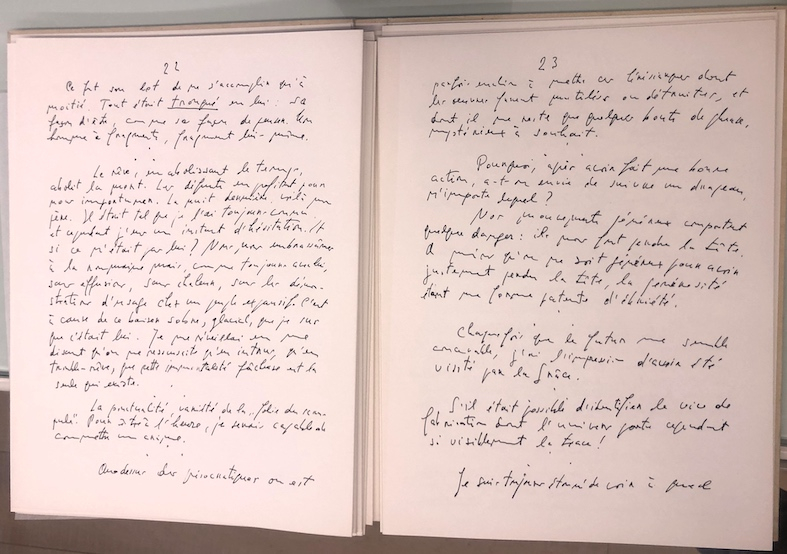 22
Ce fut son lot de ne s'accomplir qu'à
moitié. Tout était tronqué en lui : sa
façon d'être, comme sa façon de penser. Un
homme à fragments, fragment lui-même.
Le rêve, en abolissant le temps,
abolit la mort. Les défunts en profitent pour
nous importuner. La nuit dernière, voilà mon
père. Il était tel que je l'ai toujours connu
et cependant j'eus un instant d'hésitation. Et
si ce n'était pas lui ? Nous nous embrassâmes
à la roumaine mais, comme toujours avec lui,
sans effusion, sans chaleur, sans les démons-
trations d'usage chez un peuple expansif. C'est
à cause de ce baiser sobre, glacial, que je sus
que c'était lui. Je me réveillai en me
disant qu'on ne ressuscite qu'en intrus, qu'en
trouble-rêve, que cette immortalité fâcheuse est la
seule qui existe.
La ponctualité, variété de la „folie du scru-
pule". Pour être à l'heure, je serais capable de
commettre un crime.
Au-dessus des présocratiques on est
23
parfois enclin à mettre ces hérésiarques dont
les œuvres furent mutilées ou détruites, et
dont il ne reste que quelques bouts de phrase,
mystérieux à souhait.
Pourquoi, après avoir fait une bonne
action, a-t-on envie de suivre un drapeau,
n'importe lequel ?
Nos mouvements généreux comportent
quelque danger : ils nous font perdre la tête.
A moins qu'on ne soit généreux pour avoir
justement perdu la tête, la générosité
étant une forme patente d'ébriété.
Chaque fois que le futur me semble
concevable, j'ai l'impression d'avoir été
visité par la Grâce.
S'il était possible d'identifier le vice de
fabrication dont l'univers porte cependant
si visiblement la trace !
Je suis toujours étonné de voir à quel